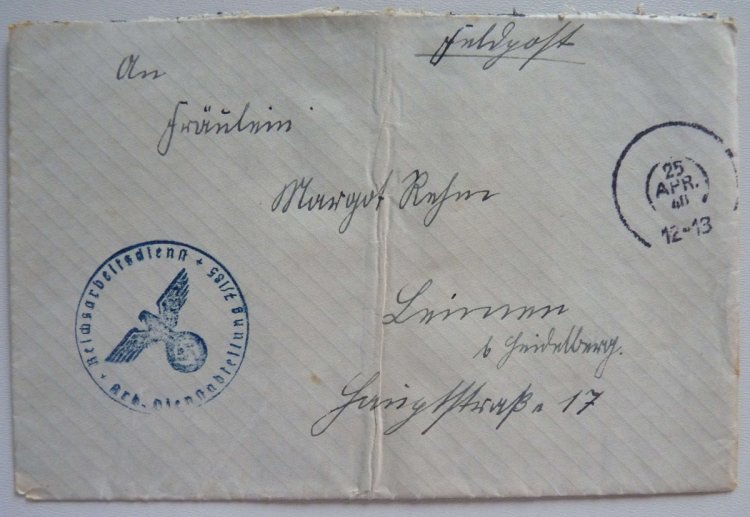 Feldpost
An
Fräulein
Margot Rehm
Leimen
b Heidelberg.
Hauptstraße 17
25
APR.
40
12-13
Reichsarbeitsdienst + Arb.-Dienstabteilung 7/185 +